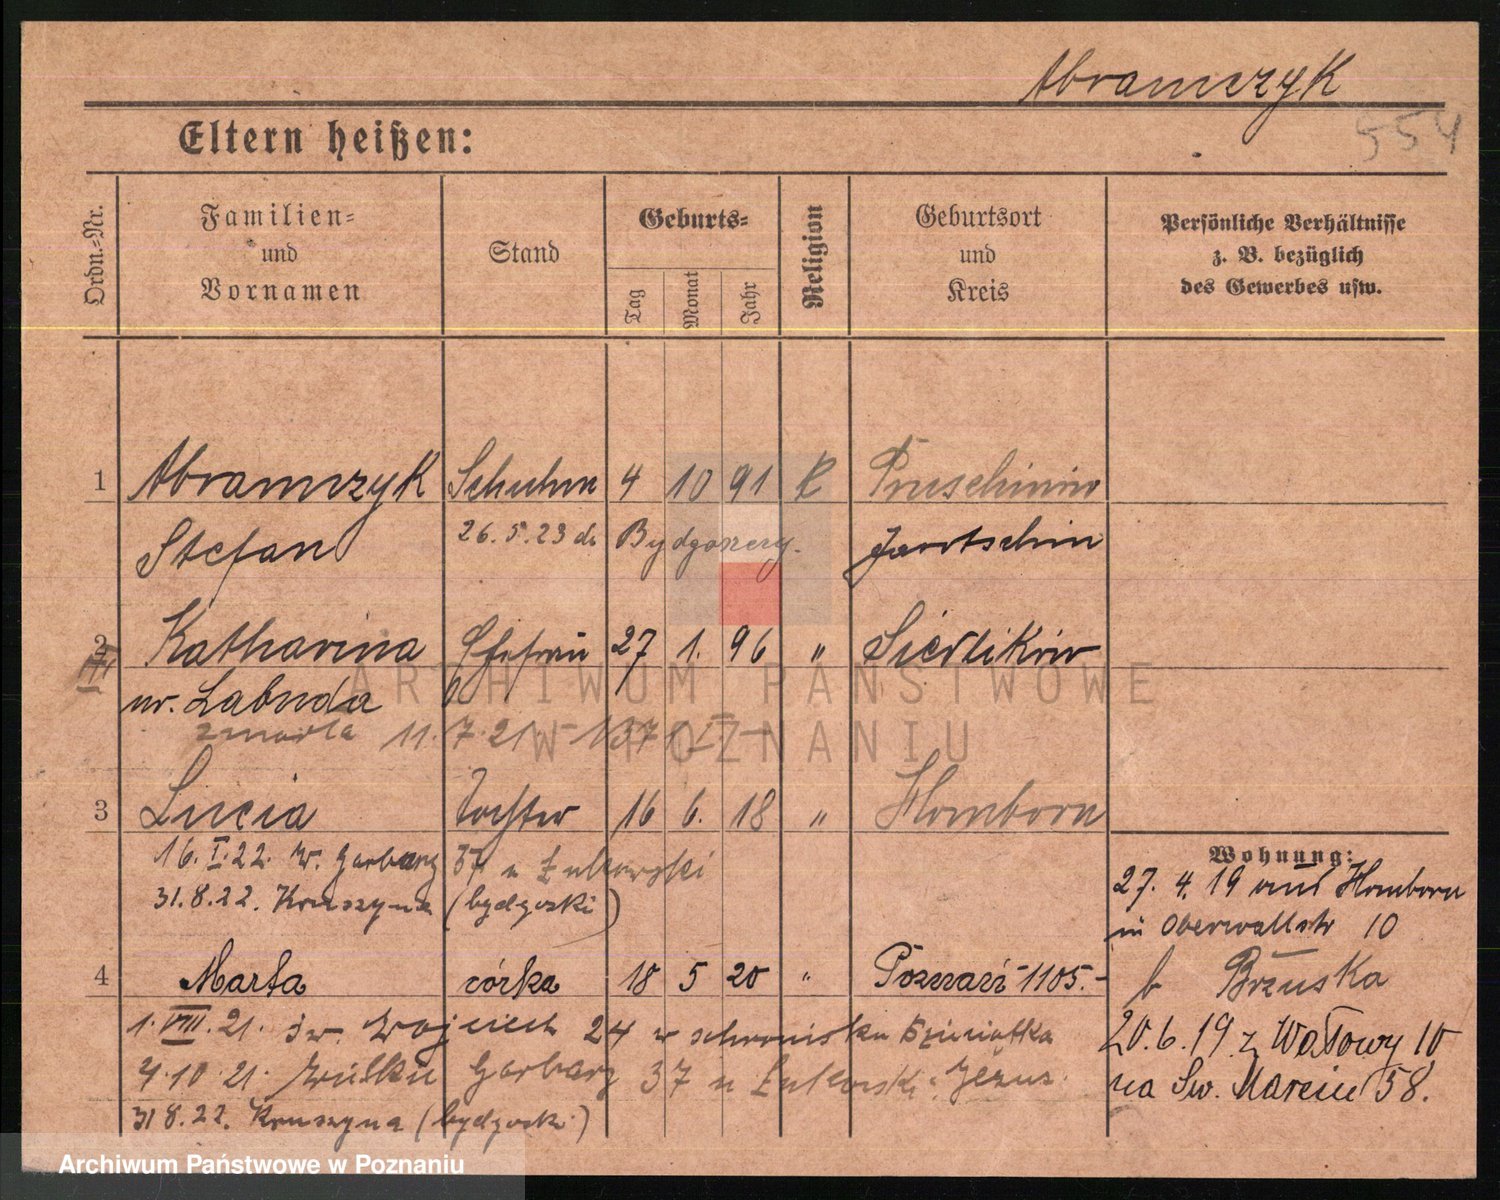 Abramczyk
554
Eltern heißen:
Ordn.-Nr.
Familien- und Vornamen
Stand
Geburts-
Tag
Monat
Jahr
Religion
Geburtsort und Kreis
Persönliche Verhältnisse z. B. bezüglich des Gewerbes usw.
1 Abramczyk Schuhm 4 10 91 K Pruschinow
Stefan 26.5.23 do Bydgoszczy. Jarotschin
2 Katharina Ehefrau 27 1. 96 " Siedlików
ur. Labuda
zmarła 11.7.21.
3 Lucia Tochter 16 6. 18 " Homborn
16.I.22. W. Garbary 37 u Łukowski
31.8.22. Kruszyna (bydgoski)
4 Marta córka 18 5 20 " Poznań-1105.-
1.VIII.21. św. Wojciech 24 w schronisku Dzieciątka
4.10.21. Wielkie Garbary 37 u Łukowski. Jezus.
31 8.22. Kruszyna (bydgoski)
Wohnung:
27. 4. 19 aus Homborn
in Oberwallstr 10
b Brzuska
20.6.19. z Wałowy 10
na Św. Marcin 58.
ARCHIWUM PAŃSTWOWE
W POZNANIU
Archiwum Państwowe w Poznaniu